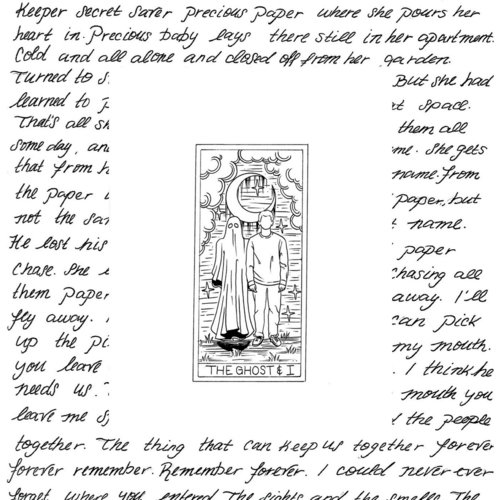 Keeper secret saver precious paper where she pours her
heart in. Precious baby lays there still in her apartment.
Cold and all alone and closed off from her garden.
Turned to S But she had
learned to p space.
That's all sh them all
someday, an me. She gets
that from h name from
the paper paper, but
not the sa name.
He lost his paper
chase. She Chasing all
them paper away. I'll
fly away. can pick
up the pi my mouth.
you leave . I think he
needs us. mouth you
leave me s the people
THE GHOST & I
together. The thing that can keep us together forever
forever remember. Remember forever. I could never ever
forget where you entered The sights and the smells The